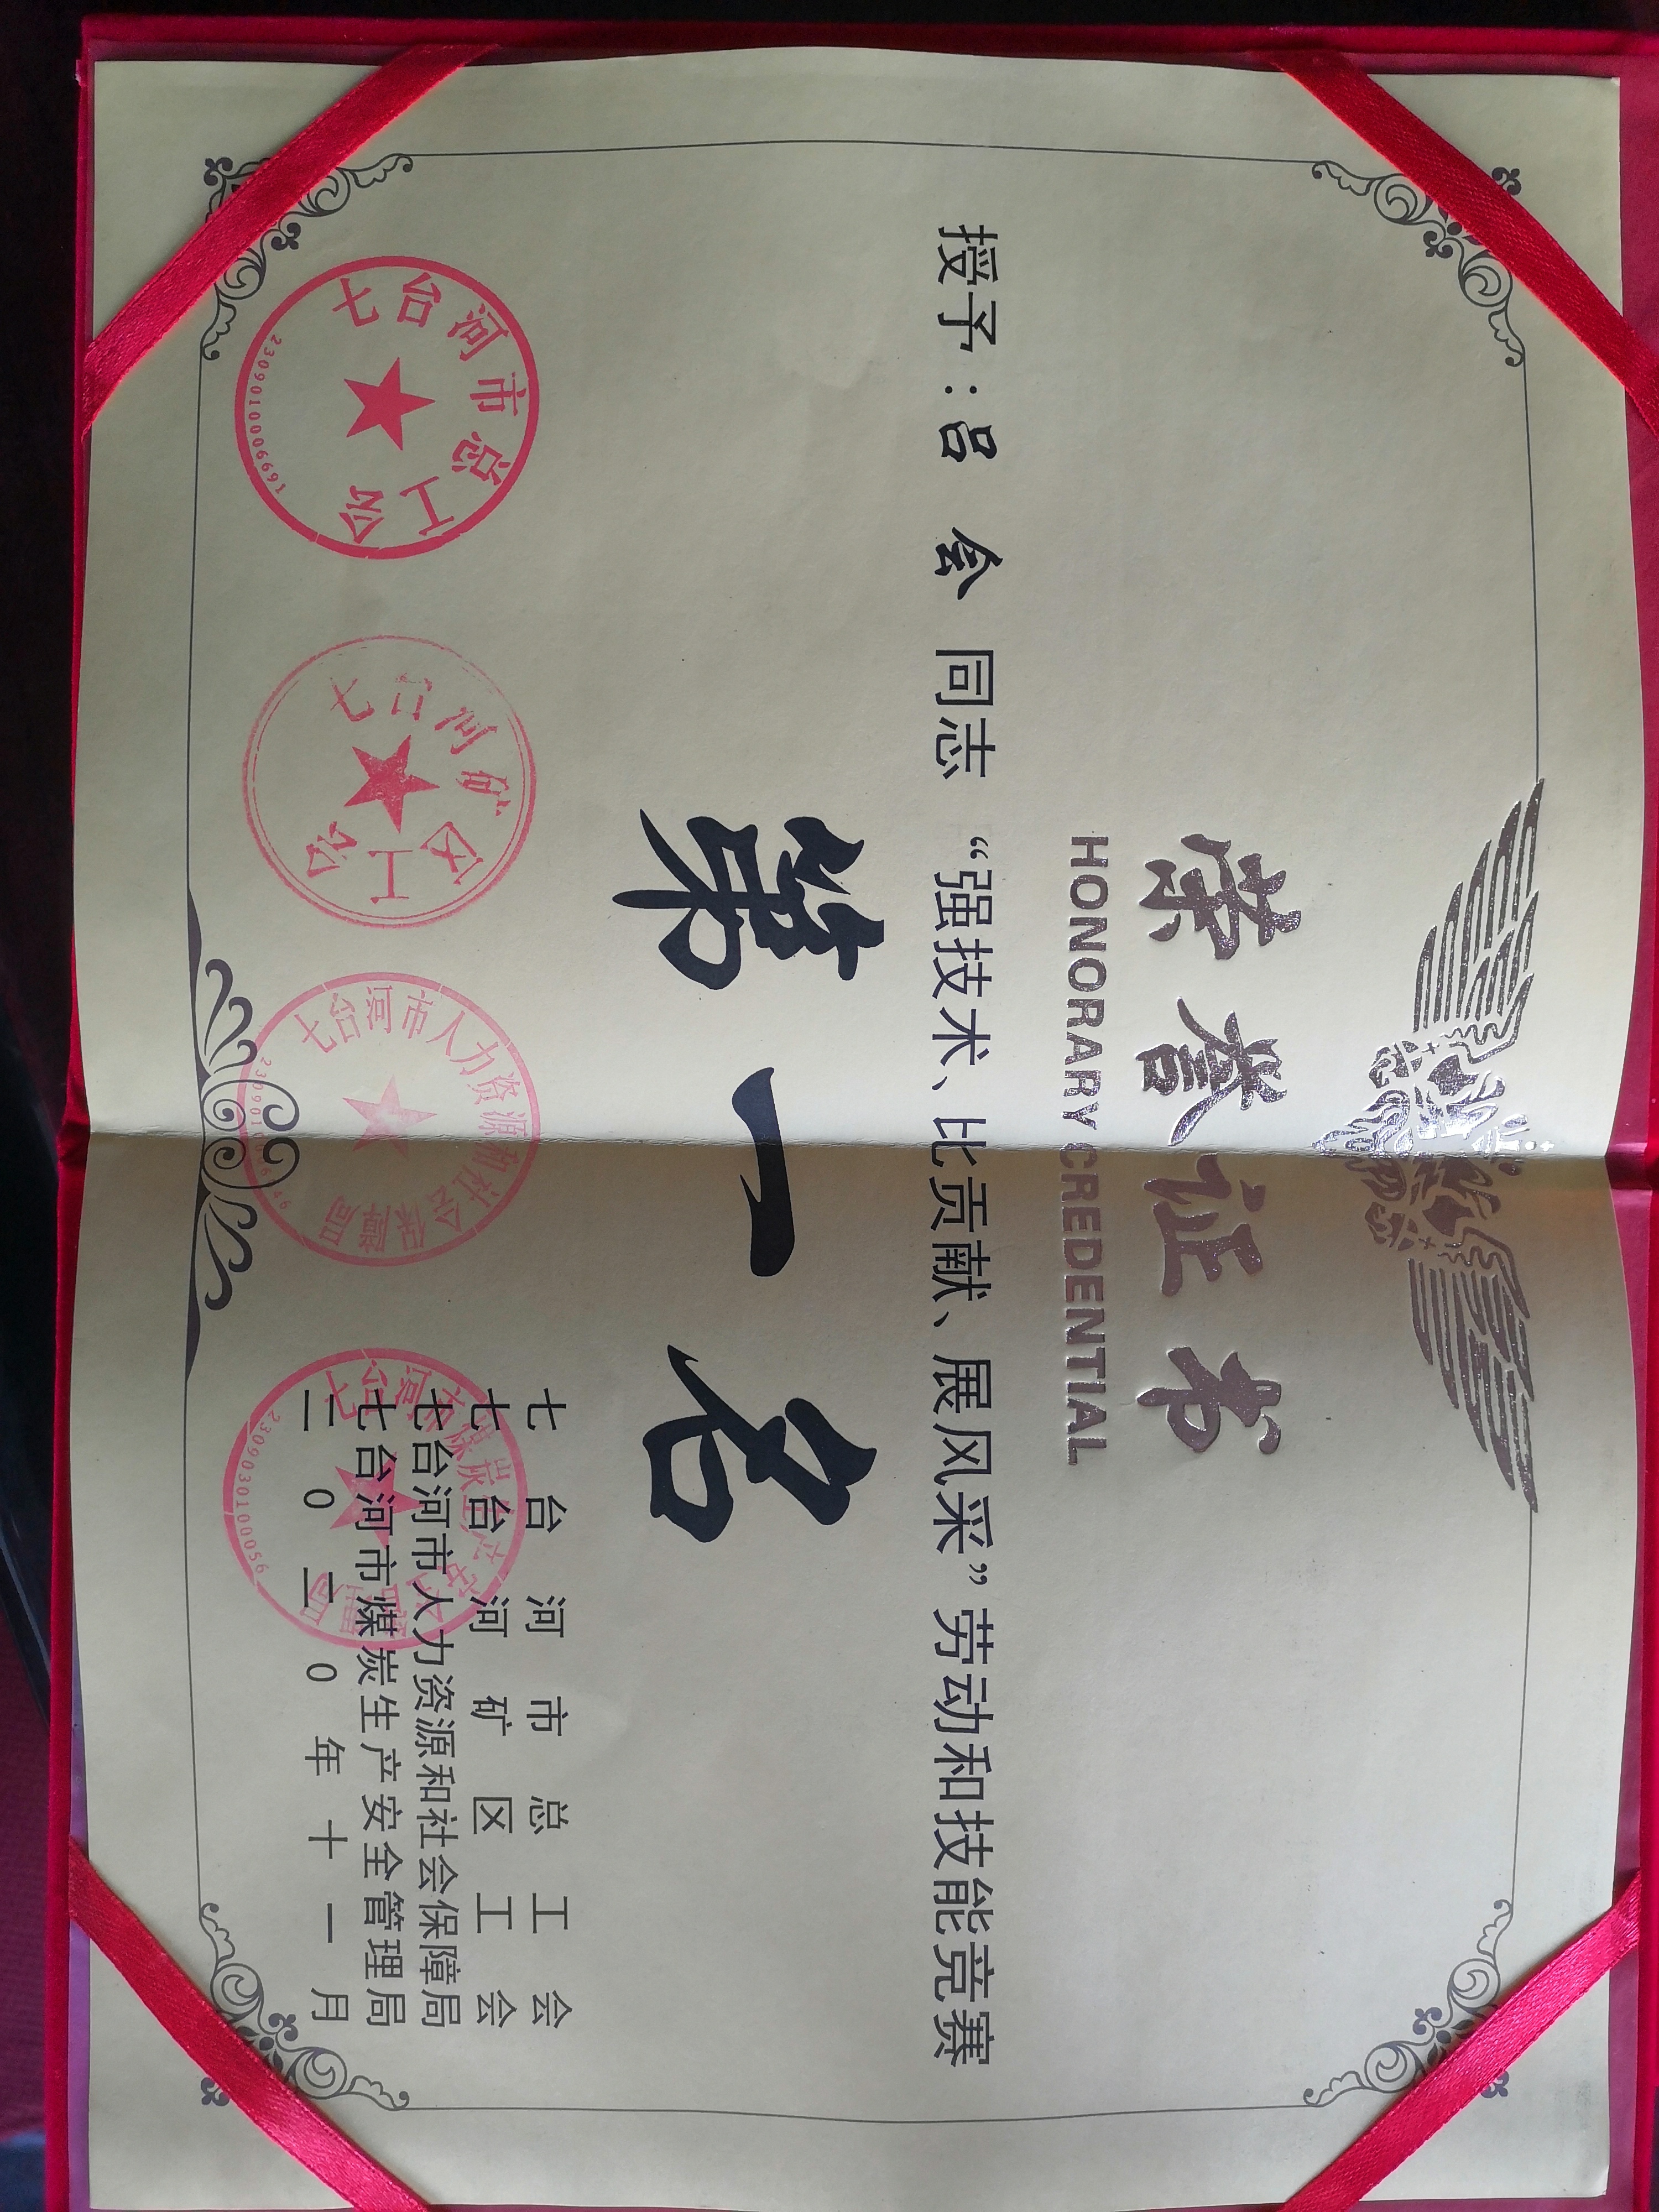 荣誉证书
HONORARY CREDENTIAL
授予：吕 会 同志 “强技术、比贡献、展风采”劳动和技能竞赛
第一名
七台河市总工会
七台河矿区工会
七台河市人力资源和社会保障局
七台河市煤炭生产安全管理局
二0二0年十一月
七台河市总工会
2309010009961
七台河矿区工会
七台河市人力资源和社会保障局
七台河市煤炭生产安全管理局
2309030100056